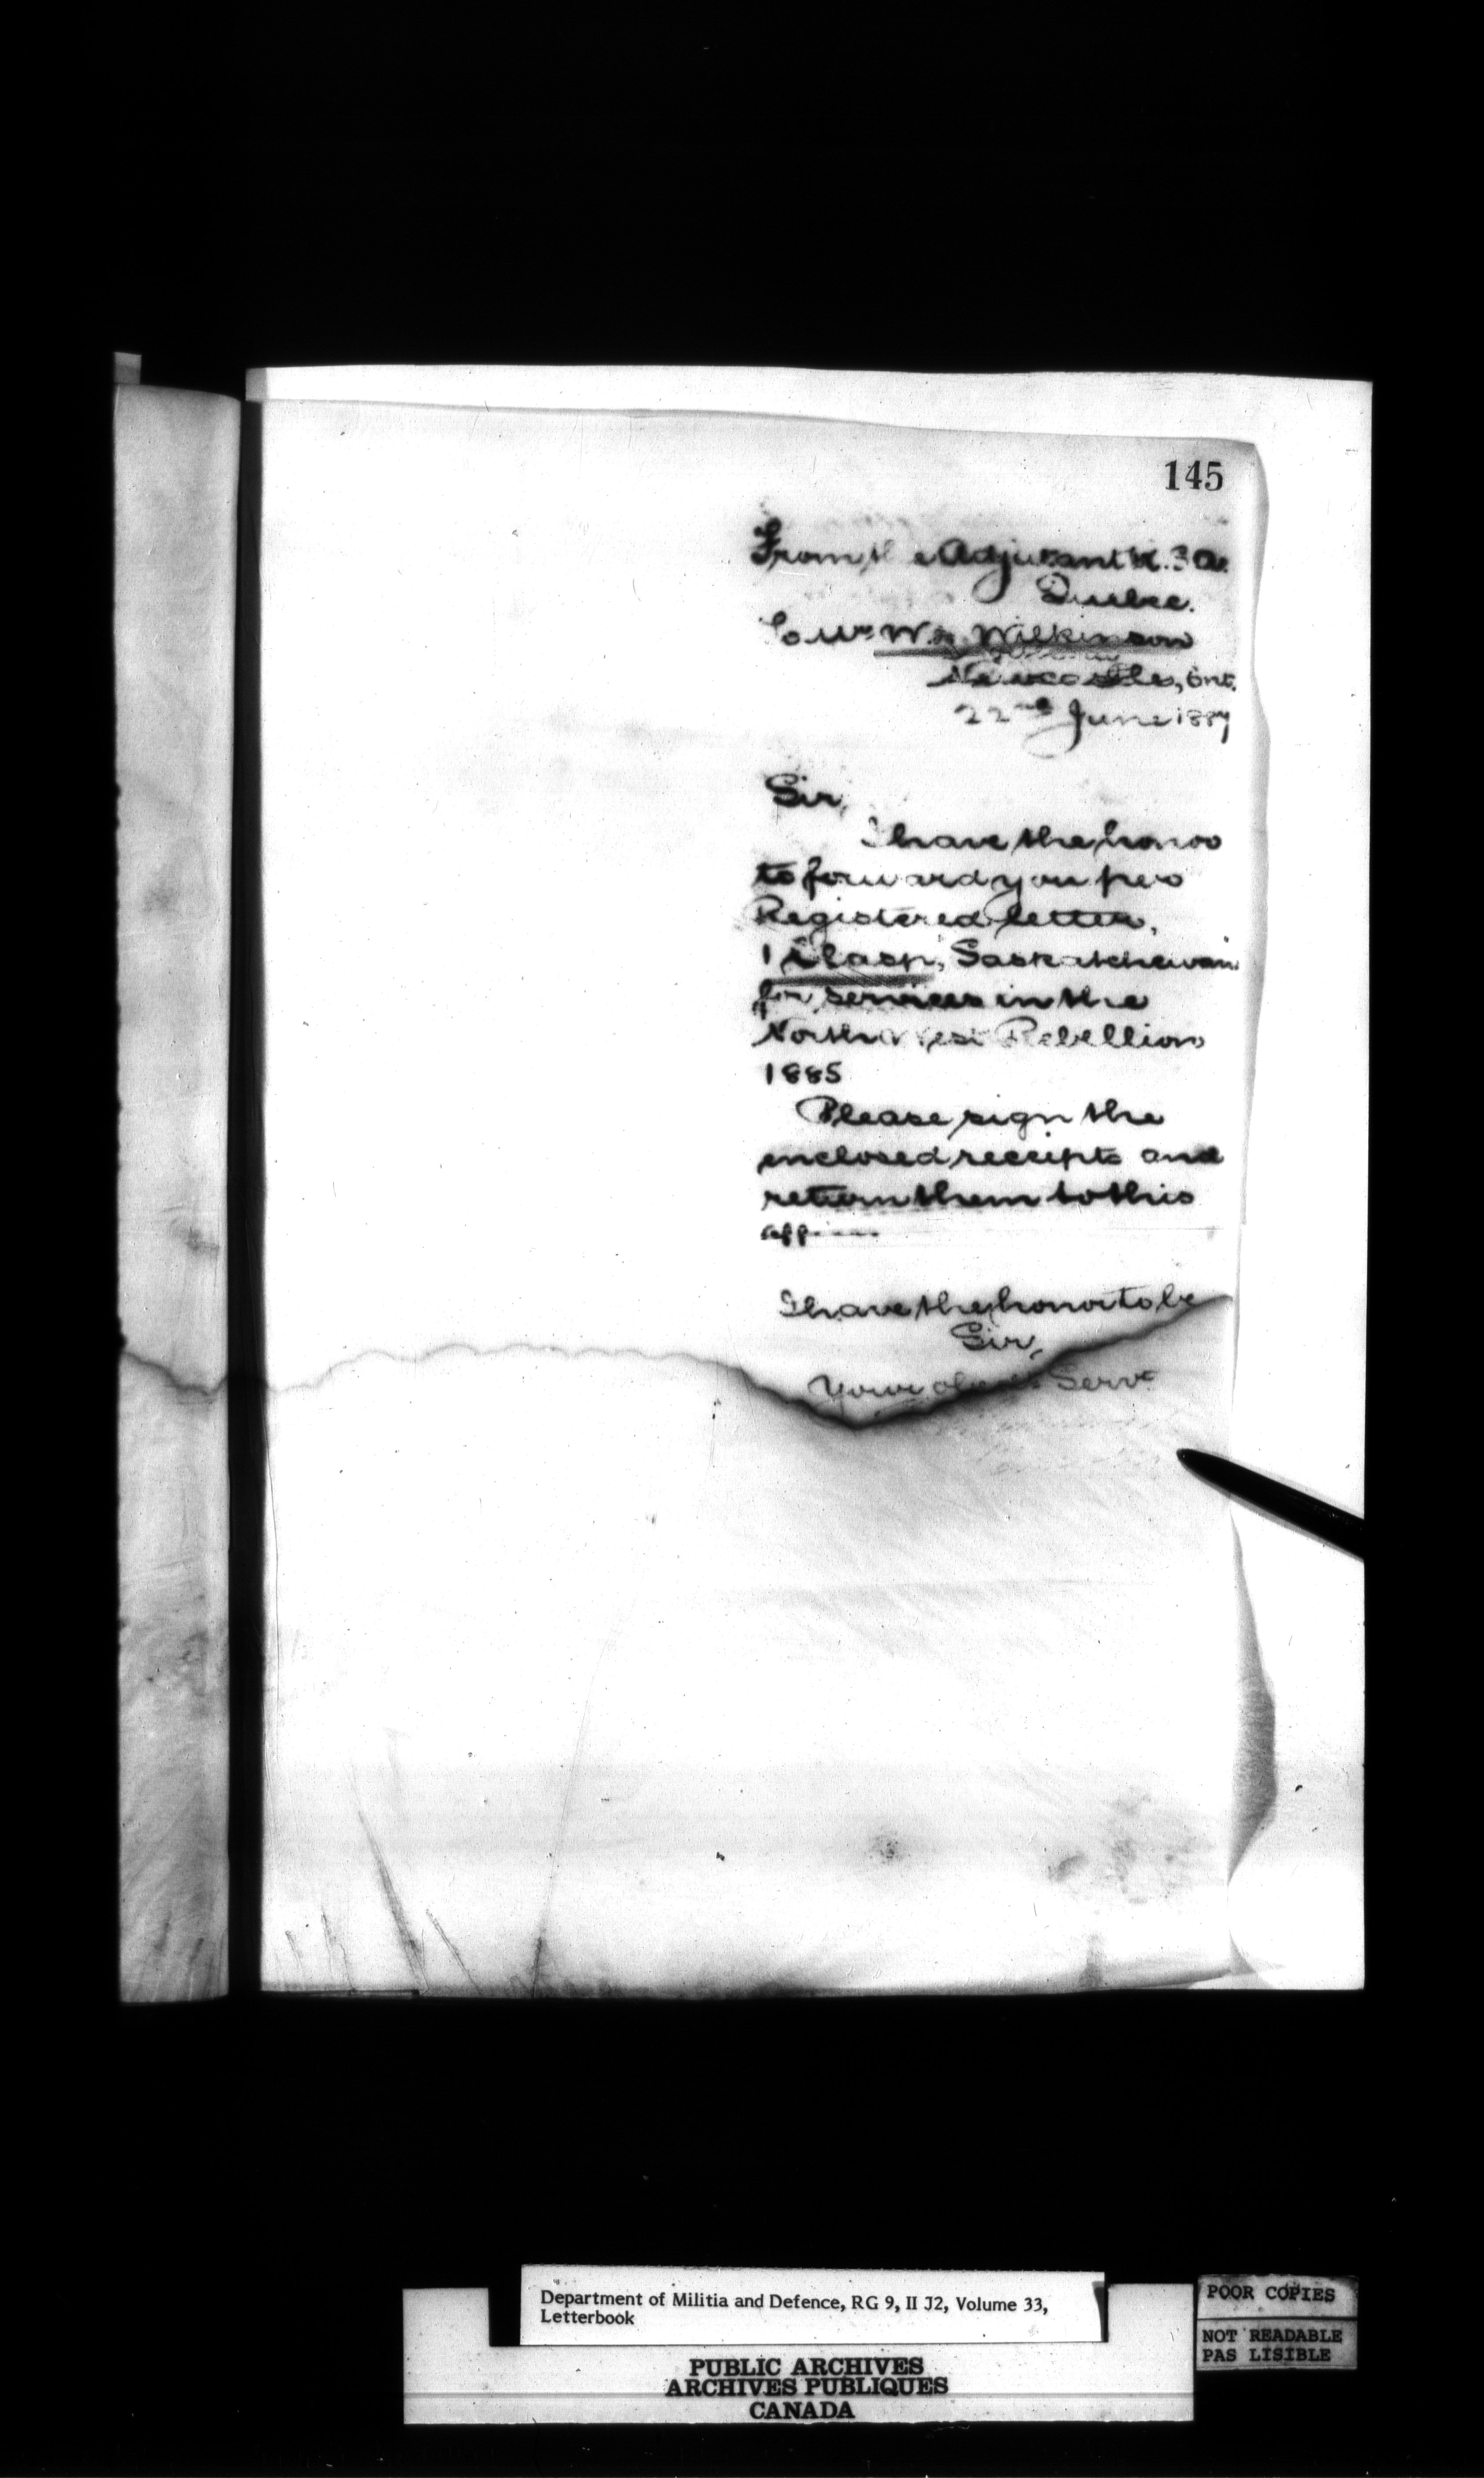 145
From the Adjutant
Quebec.
To Mr W. Wilkinson
Newcastle, Ont.
22nd June 1887
Sir,
I have the honor
to forward you per
Registered letter,
1 Clasp, Saskatchewan
for services in the
North West Rebellion
1885
Please sign the
enclosed receipts and
return them to this
I have the honor to be
Sir,
Your obedt Servt
Department of Militia and Defence, RG 9, II J2, Volume 33,
Letterbook
PUBLIC ARCHIVES
ARCHIVES PUBLIQUES
CANADA
POOR COPIES
NOT READABLE
PAS LISIBLE